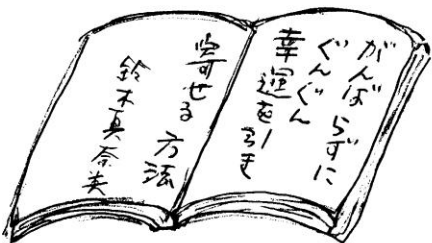 がんばらずに
ぐんぐん
幸運を引き
寄せる方法
鈴木真奈美